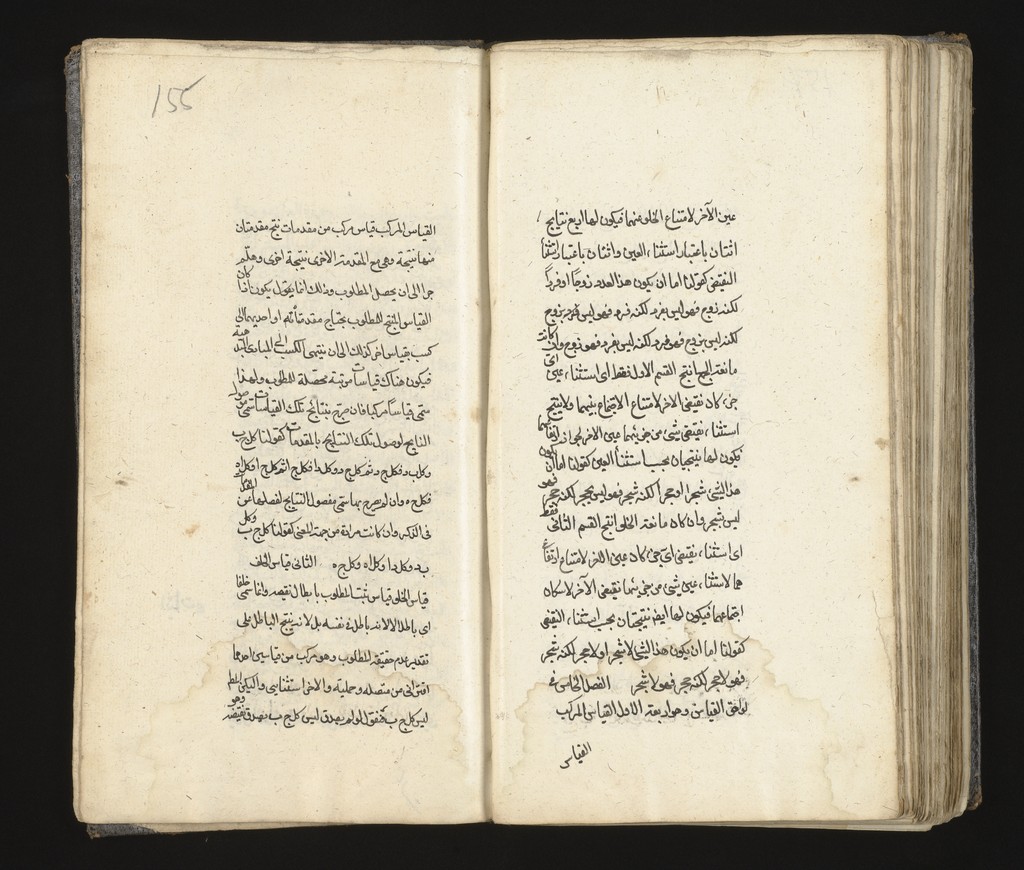 عين الآخر لامتناع الخلو عنهما فيكون لها اربع نتايج
اثنتان باعتبار استثناء العين واثنتان باعتبار استثنا
النقيض كقولنا اما ان يكون هذا العدد زوجا او فردا
لكنه زوج فهو ليس بفرد لكنه فرد فهو ليس بزوج
لكنه ليس بزوج فهو فرد لكنه ليس بفرد فهو زوج وان كانت
مانعة الجمع انتج القسم الاول فقط اى استثناء عين اى
جزء كان نقيض الاخر لامتناع الاجتماع بينهما ولا ينتج
استثناء نقيض شئ من جزئيهما عين الاخر لجواز ارتفاعهما
فيكون لها نتيجتان بحسب استثنأ العين كقولنا اما ان يكون
هذا الشئ شجرا او حجرا لكنه شجر فهو ليس بحجر لكنه حجر فهو
ليس شجر وان كان مانعة الخلو انتج القسم الثانى فقط
اى استثناء نقيض اى جزء كان عين الاخر لامتناع ارتفا
عهما لا استثناء عين شئ من جزئيهما نقيض الآخر لامكان
اجتماعهما فيكون لها ايضا نتيجتان بحسب استثناء النقيض
كقولنا اما ان يكون هذا الشئ لا شجر او لا حجر لكنه شجر
فهو لا حجر لكنه حجر فهو لا شجر الفصل الخامس فى
لواحق القياس وهو اربعة الاول القياس المركب
القياس
155
القياس المركب قياس مركب من مقدمات ينتج مقدمتان
منها نتيجة وهى مع المقدمة الاخرى نتيجة اخرى وهلم
جرا الى ان يحصل المطلوب وذلك انما يكون اذا كان
القياس المنتج للمطلوب يحتاج مقدمتاه او احديهما الى
كسب بقياس اخر كذلك الى ان ينتهى الكسب الى المبادى البديهية
فيكون هناك قياسات مرتبة محصلة للمطلوب ولهذا
سمى قياسا مركبا فان صرح بنتائج تلك القياسات سمى موصول
النتايج لوصول تلك النتايج بالمقدمات كقولنا كل ج ب
وكل ب د فكل ج د ثم كل ج د وكل د ا فكل ج ا ثم كل ج ا وكل ا ه
فكل ج ه وان لم يصرح بها سمى مفصول النتايج لفصلها عن المقدمات
فى الذكر وان كانت مرادة من جهة المعنى كقولنا كل ج ب وكل
ب د وكل د ا وكل ا ه وكل ج ه الثانى قياس الخلف
قياس الخلف قياس يثبت المطلوب بابطال نقيضه وانما سمى خلفا
اى باطلا لا لانه باطل فى نفسه بل لانه ينتج الباطل على
تقدير عدم حقيقة المطلوب وهو مركب من قياسين احدهما
اقترانى من متصلة وحملية والاخر استثنايى وليكن المط
ليس كل ج ب فنقول لو لم يصدق ليس كل ج ب يصدق نقيضه وهو